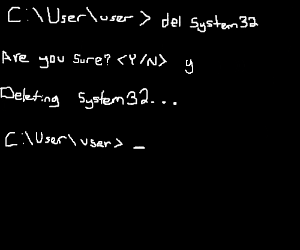 C:\User\user > del System32
Are you sure? <Y/N> y
Deleting System32...
C:\User\user> _